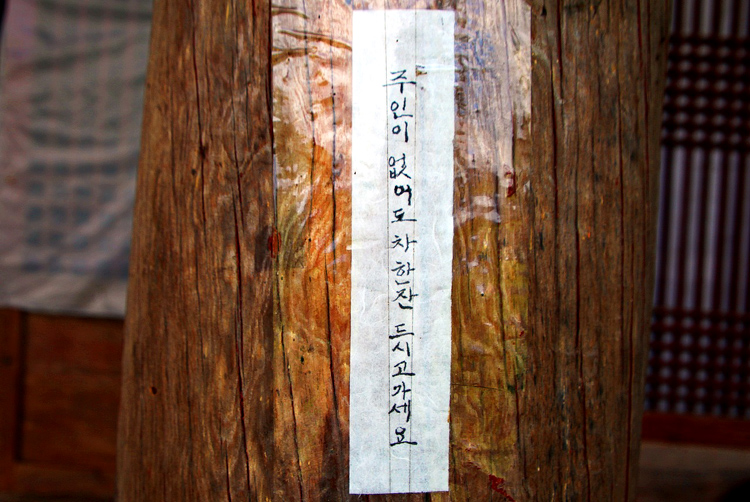 주인이 없어도 차 한잔 드시고 가세요